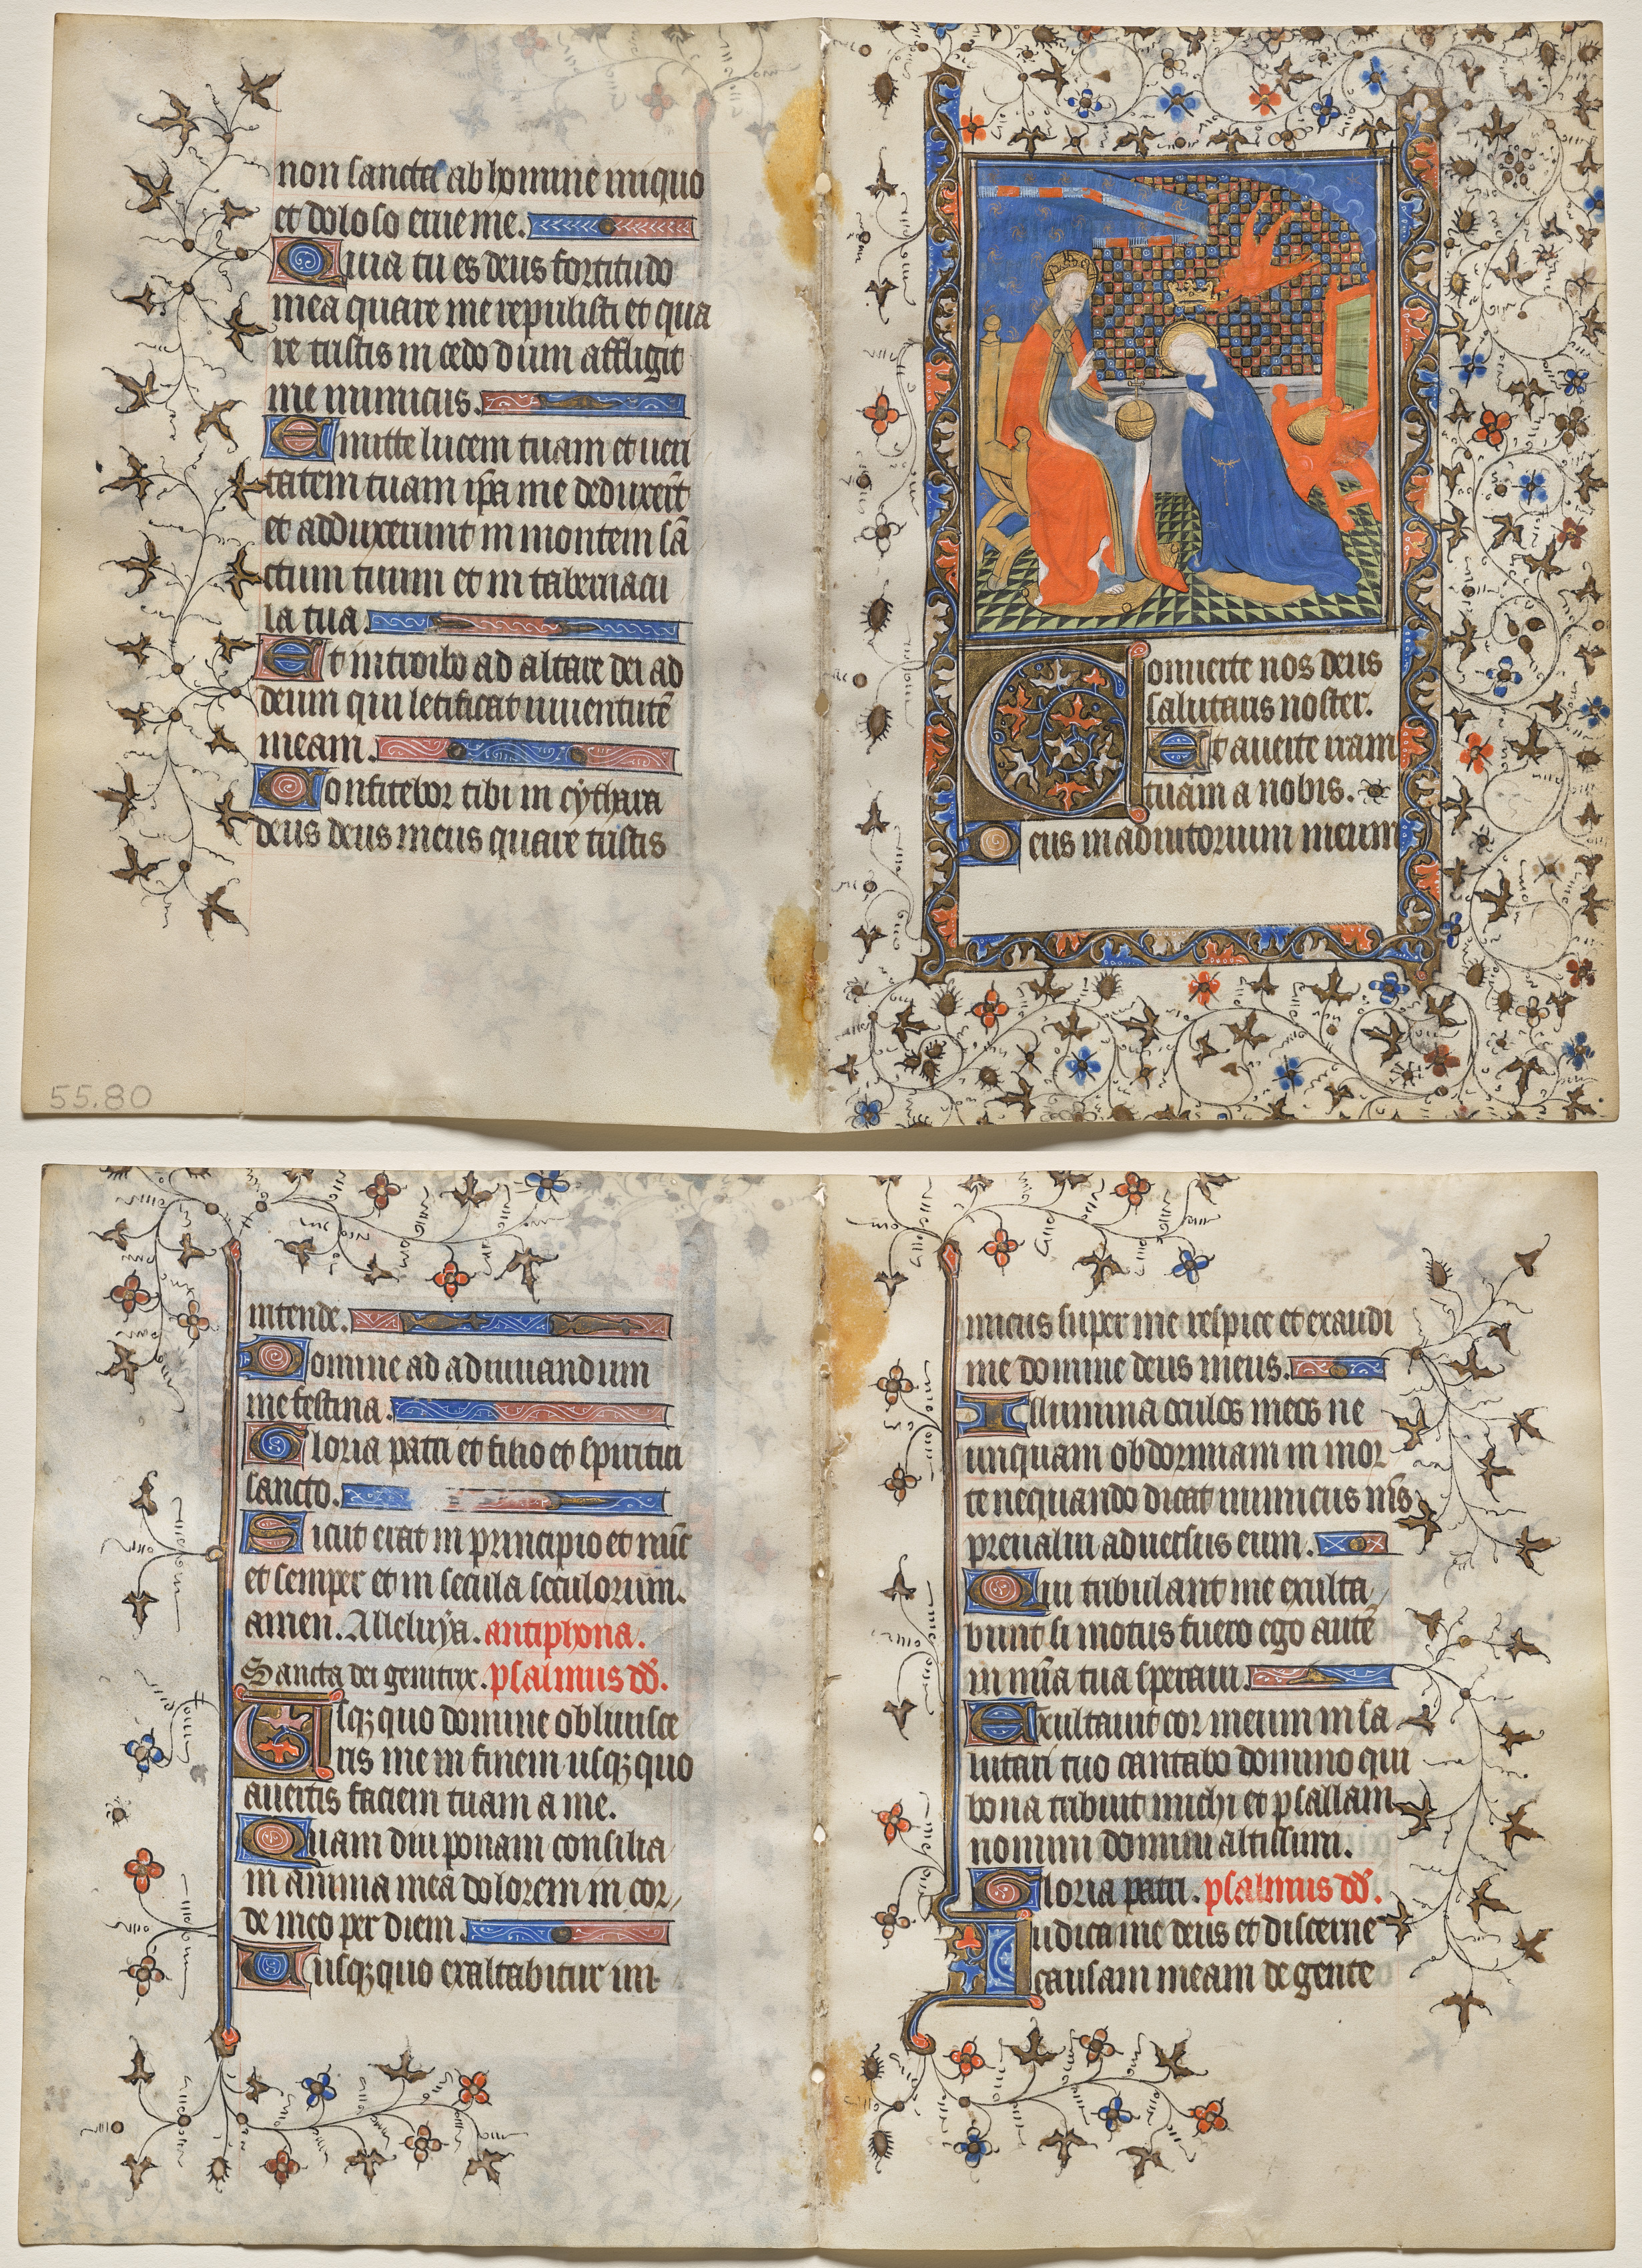 non sancta ab homine iniquo
et doloso erue me.
Quia tu es deus fortitudo
mea quare me repulisti et qua
re tristis incedo dum affligit
me inimicus.
Emitte lucem tuam et ueri
tatem tuam ip̃a me deduxer̃t
et adduxerunt in montem sã
ctum tuum et in tabernacu
la tua.
Et introibo ad altare dei ad
deum qui letificat iuuentutẽ
meam.
Confitebor tibi in cythara
deus deus meus quare tristis
55.80
Conuerte nos deus
salutaris noster.
Et auerte iram
tuam a nobis.
Deus in adiutorium meum
intende.
Domine ad adiuuandum
me festina.
Gloria patri et filio et spiritui
sancto.
Sicut erat in principio et nũc
et semper et in secula seculorum.
amen. Alleluya. antiphona.
Sancta dei genitrix. psalmus dd̃.
Usqꝫquo domine obliuisce
ris me in finem usqꝫquo
auertis faciem tuam a me.
Quam diu ponam consilia
in anima mea dolorem in cor
de meo per diem.
Usqꝫquo exaltabitur ini
micus super me respice et exaudi
me domine deus meus.
Illumina oculos meos ne
unquam obdormiam in mor
te nequando dicat inimicus m̃s
preualui aduersus eum.
Qui tribulant me exulta
bunt si motus fuero ego autẽ
in mĩa tua speraui.
Exultauit cor meum in sa
lutari tuo cantabo domino qui
bona tribuit michi et psallam
nomini domini altissimi.
Gloria patri. psalmus dd̃.
Iudica me deus et discerne
causam meam de gente